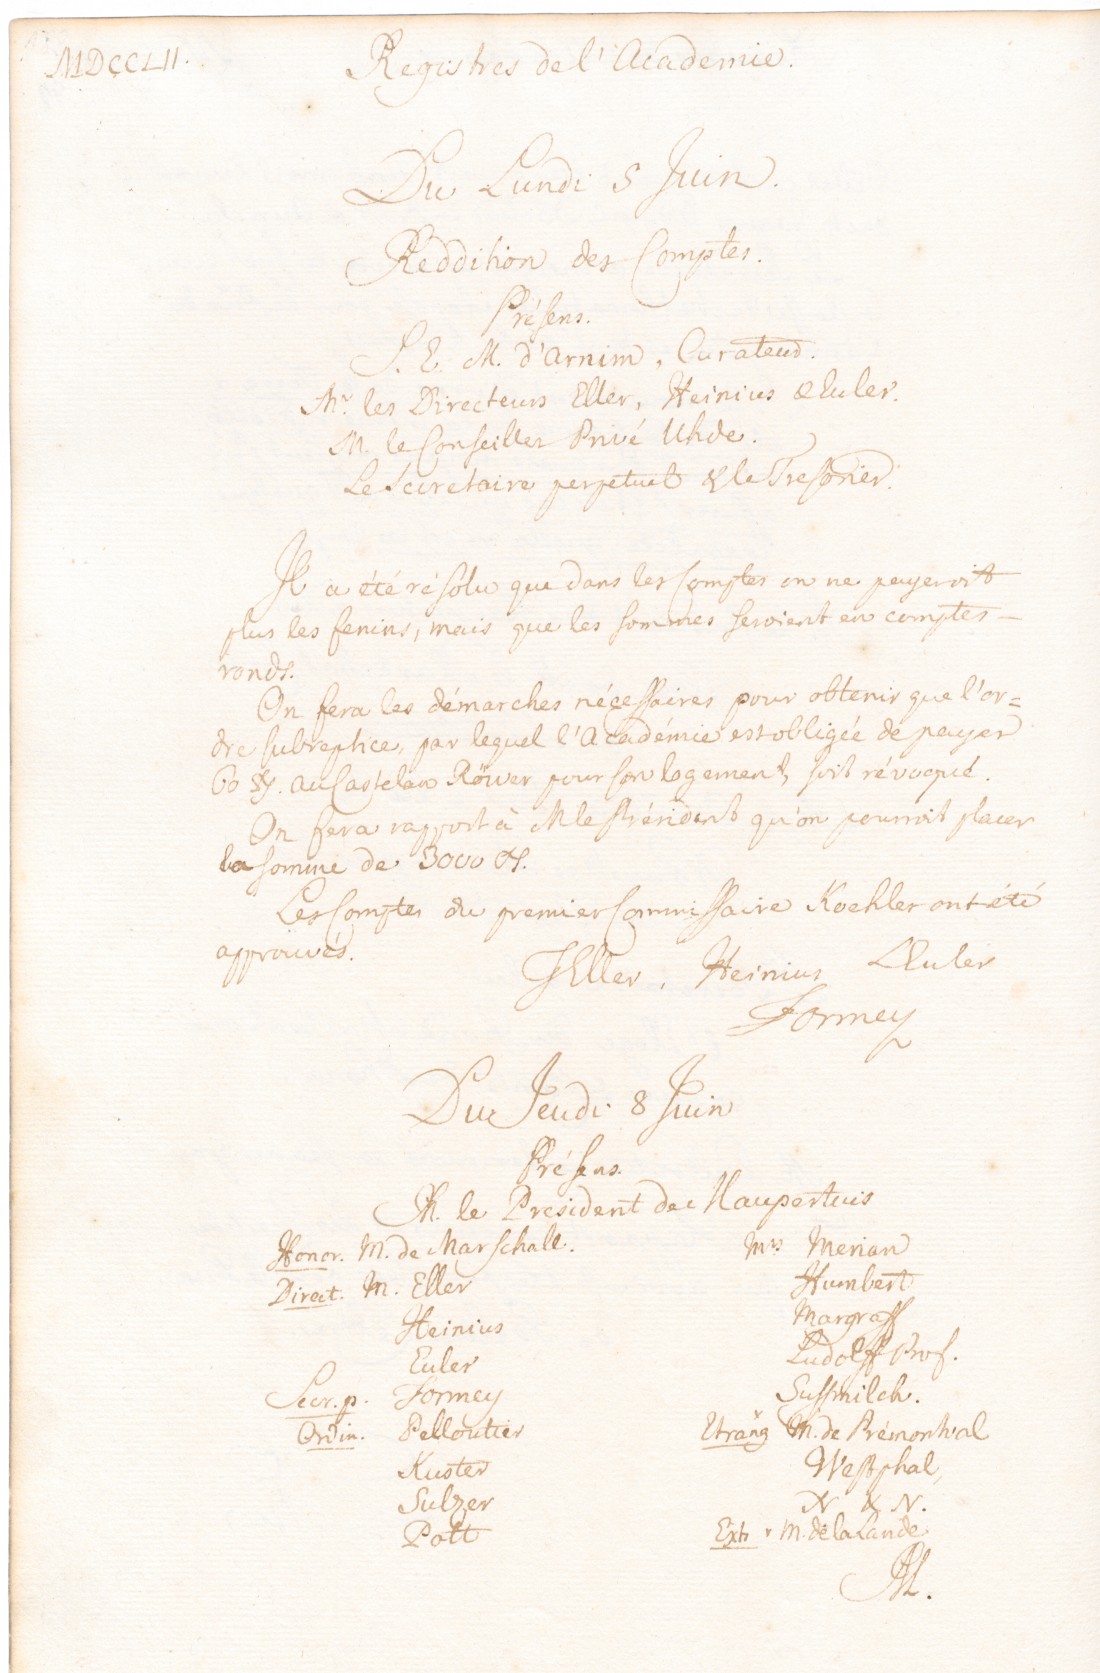 MDCCLII.
Registres de l'Academie.
Du Lundi 5 Juin.
Reddition des Comptes.
Présens.
S. E. M. d'Arnim, Curateur.
Mrs. les Directeurs Eller, Heinius & Euler.
M. le Conseiller Privé Uhde.
Le Secretaire perpetuel & le Tresorier.
Il a été résolu que dans les Comptes on ne payeroit
plus les fenins, mais que les sommes seroient en comptes
ronds.
On fera les démarches nécessaires pour obtenir que l'or=
dre subreptice, par lequel l'Académie est obligée de payer
60 au Castelan Röwer pour son logement, soit révoqué.
On fera rapport à M le Président qu'on pourroit placer
la somme de 3000
Les Comptes du premier Commissaire Koehler ont été
approuvés.
JEller, Heinius LEuler
Formey
Du Jeudi 8 Juin
Présens.
M. le President de Maupertuis
Honor. M. de Marschall.
Direct. M. Eller
Heinius
Euler
Secr. p. Formey
Ordin. Pelloutier
Kuster
Sulzer
Pott
Mrs Merian
Humbert
Margraff
Ludolff Prof.
Sussmilch.
Etrang M. de Prémontval
Westphal,
N & N.
Extr M. de la Lande
M.